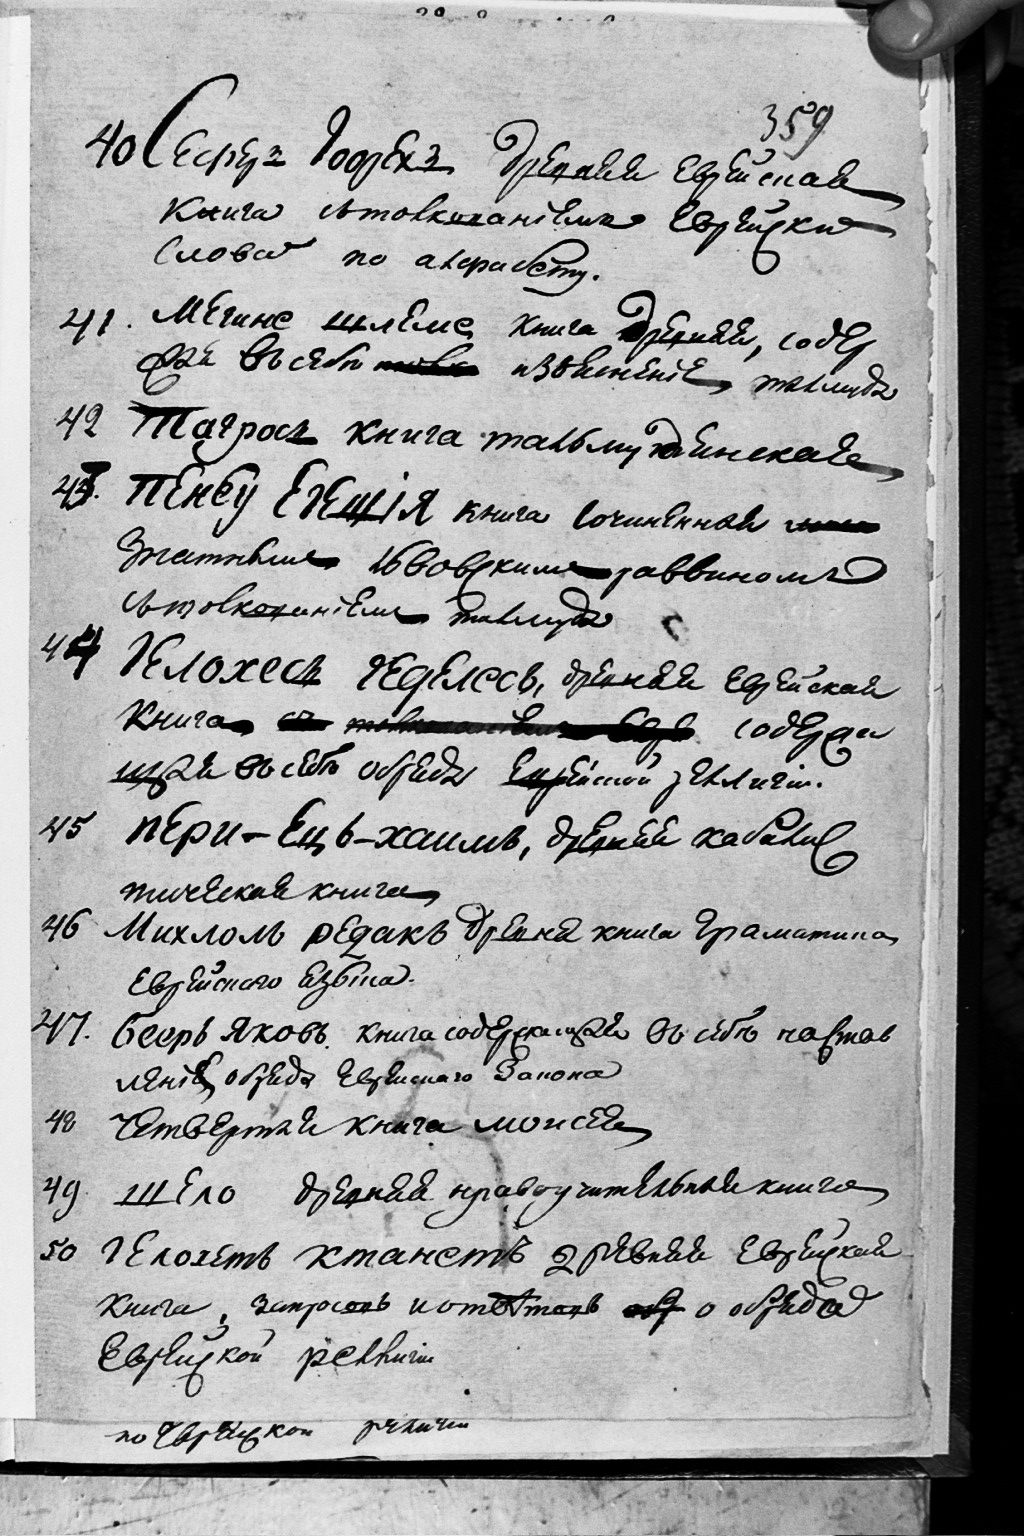 359
40 Сеферъ древняя Еврейская
книга столкованіемъ Еврейски
Слова по алфабету.
41. Мегинс шлеме книга древняя, содер
жая въ себѣ изъясненіе талмуда
42 Тагросъ книга тальмудинская
43. Пенеу Егещія книга сочиненная
Знатнымъ Львовскимъ раввиномъ
столкованіемъ талмуда
44 Гелохесъ Геделесъ, древняя Еврейская
книга содержа
щая въ себѣ обряды Еврейской религіи.
45 Пери-Ецъ-хаимъ, древняя кабалис
тическая книга
46 Михлоль редакъ древня книга Граматика
Еврейского языка.
47. Бееръ Яковъ книга содержащая въ себѣ настав
леніе, обряды Еврейского Закона
48 Четвертая книга моисея
49 Шело древняя нравоучительная книга
50 Гелохетъ ктанетъ древняя Еврейская
книга, запросовъ и ответовъ о обрядѣ
Еврейской религіи
по Еврейской религіи